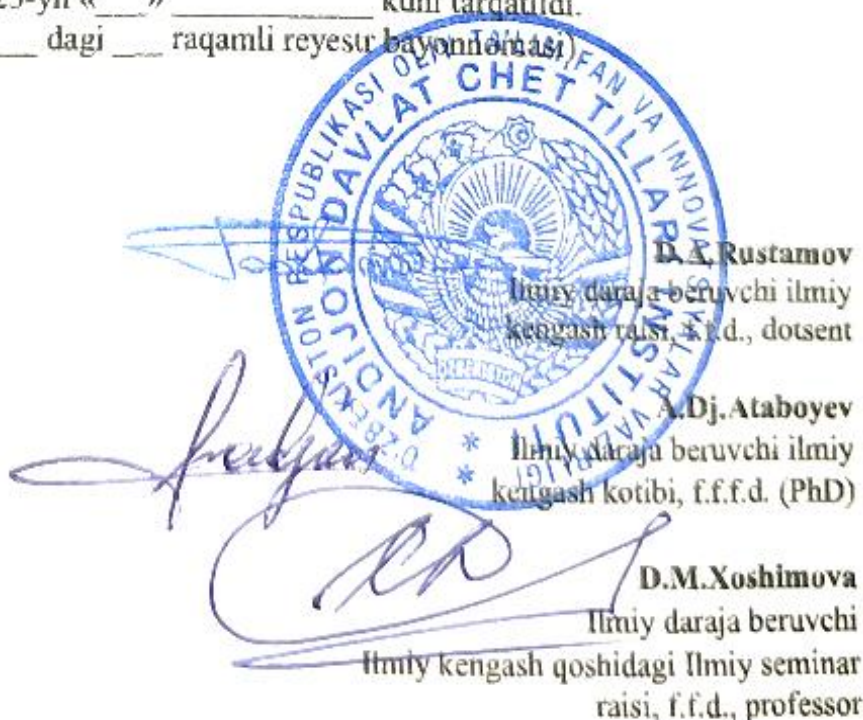 -yil «___» ______________ kuni tarqatildi.
___ dagi ___ raqamli reyestr bayonnomasi)
O‘ZBEKISTON RESPUBLIKASI OLIY TA’LIM, FAN VA INNOVATSIYALAR VAZIRLIGI
ANDIJON DAVLAT CHET TILLARI INSTITUTI
D.A.Rustamov
Ilmiy daraja beruvchi ilmiy
kengash raisi, f.f.d., dotsent
A.Dj.Ataboyev
Ilmiy daraja beruvchi ilmiy
kengash kotibi, f.f.f.d. (PhD)
D.M.Xoshimova
Ilmiy daraja beruvchi
Ilmiy kengash qoshidagi Ilmiy seminar
raisi, f.f.d., professor